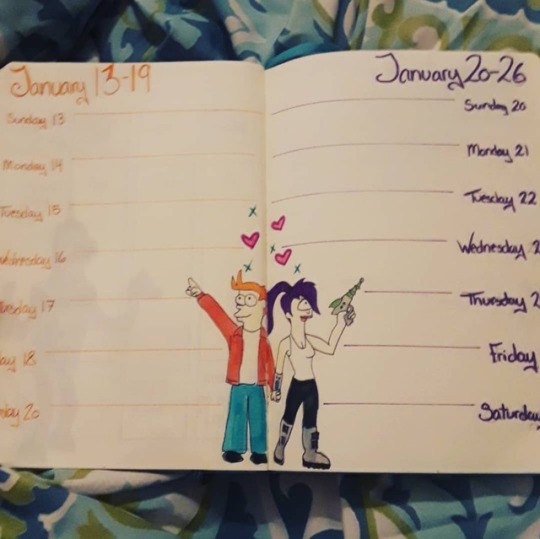 January 13-19
Sunday 13
Monday 14
Tuesday 15
Wednesday 16
17
day 18
20
January 20-26
Sunday 20
Monday 21
Tuesday 22
Wednesday 2
Thursday 2
Friday
Saturday